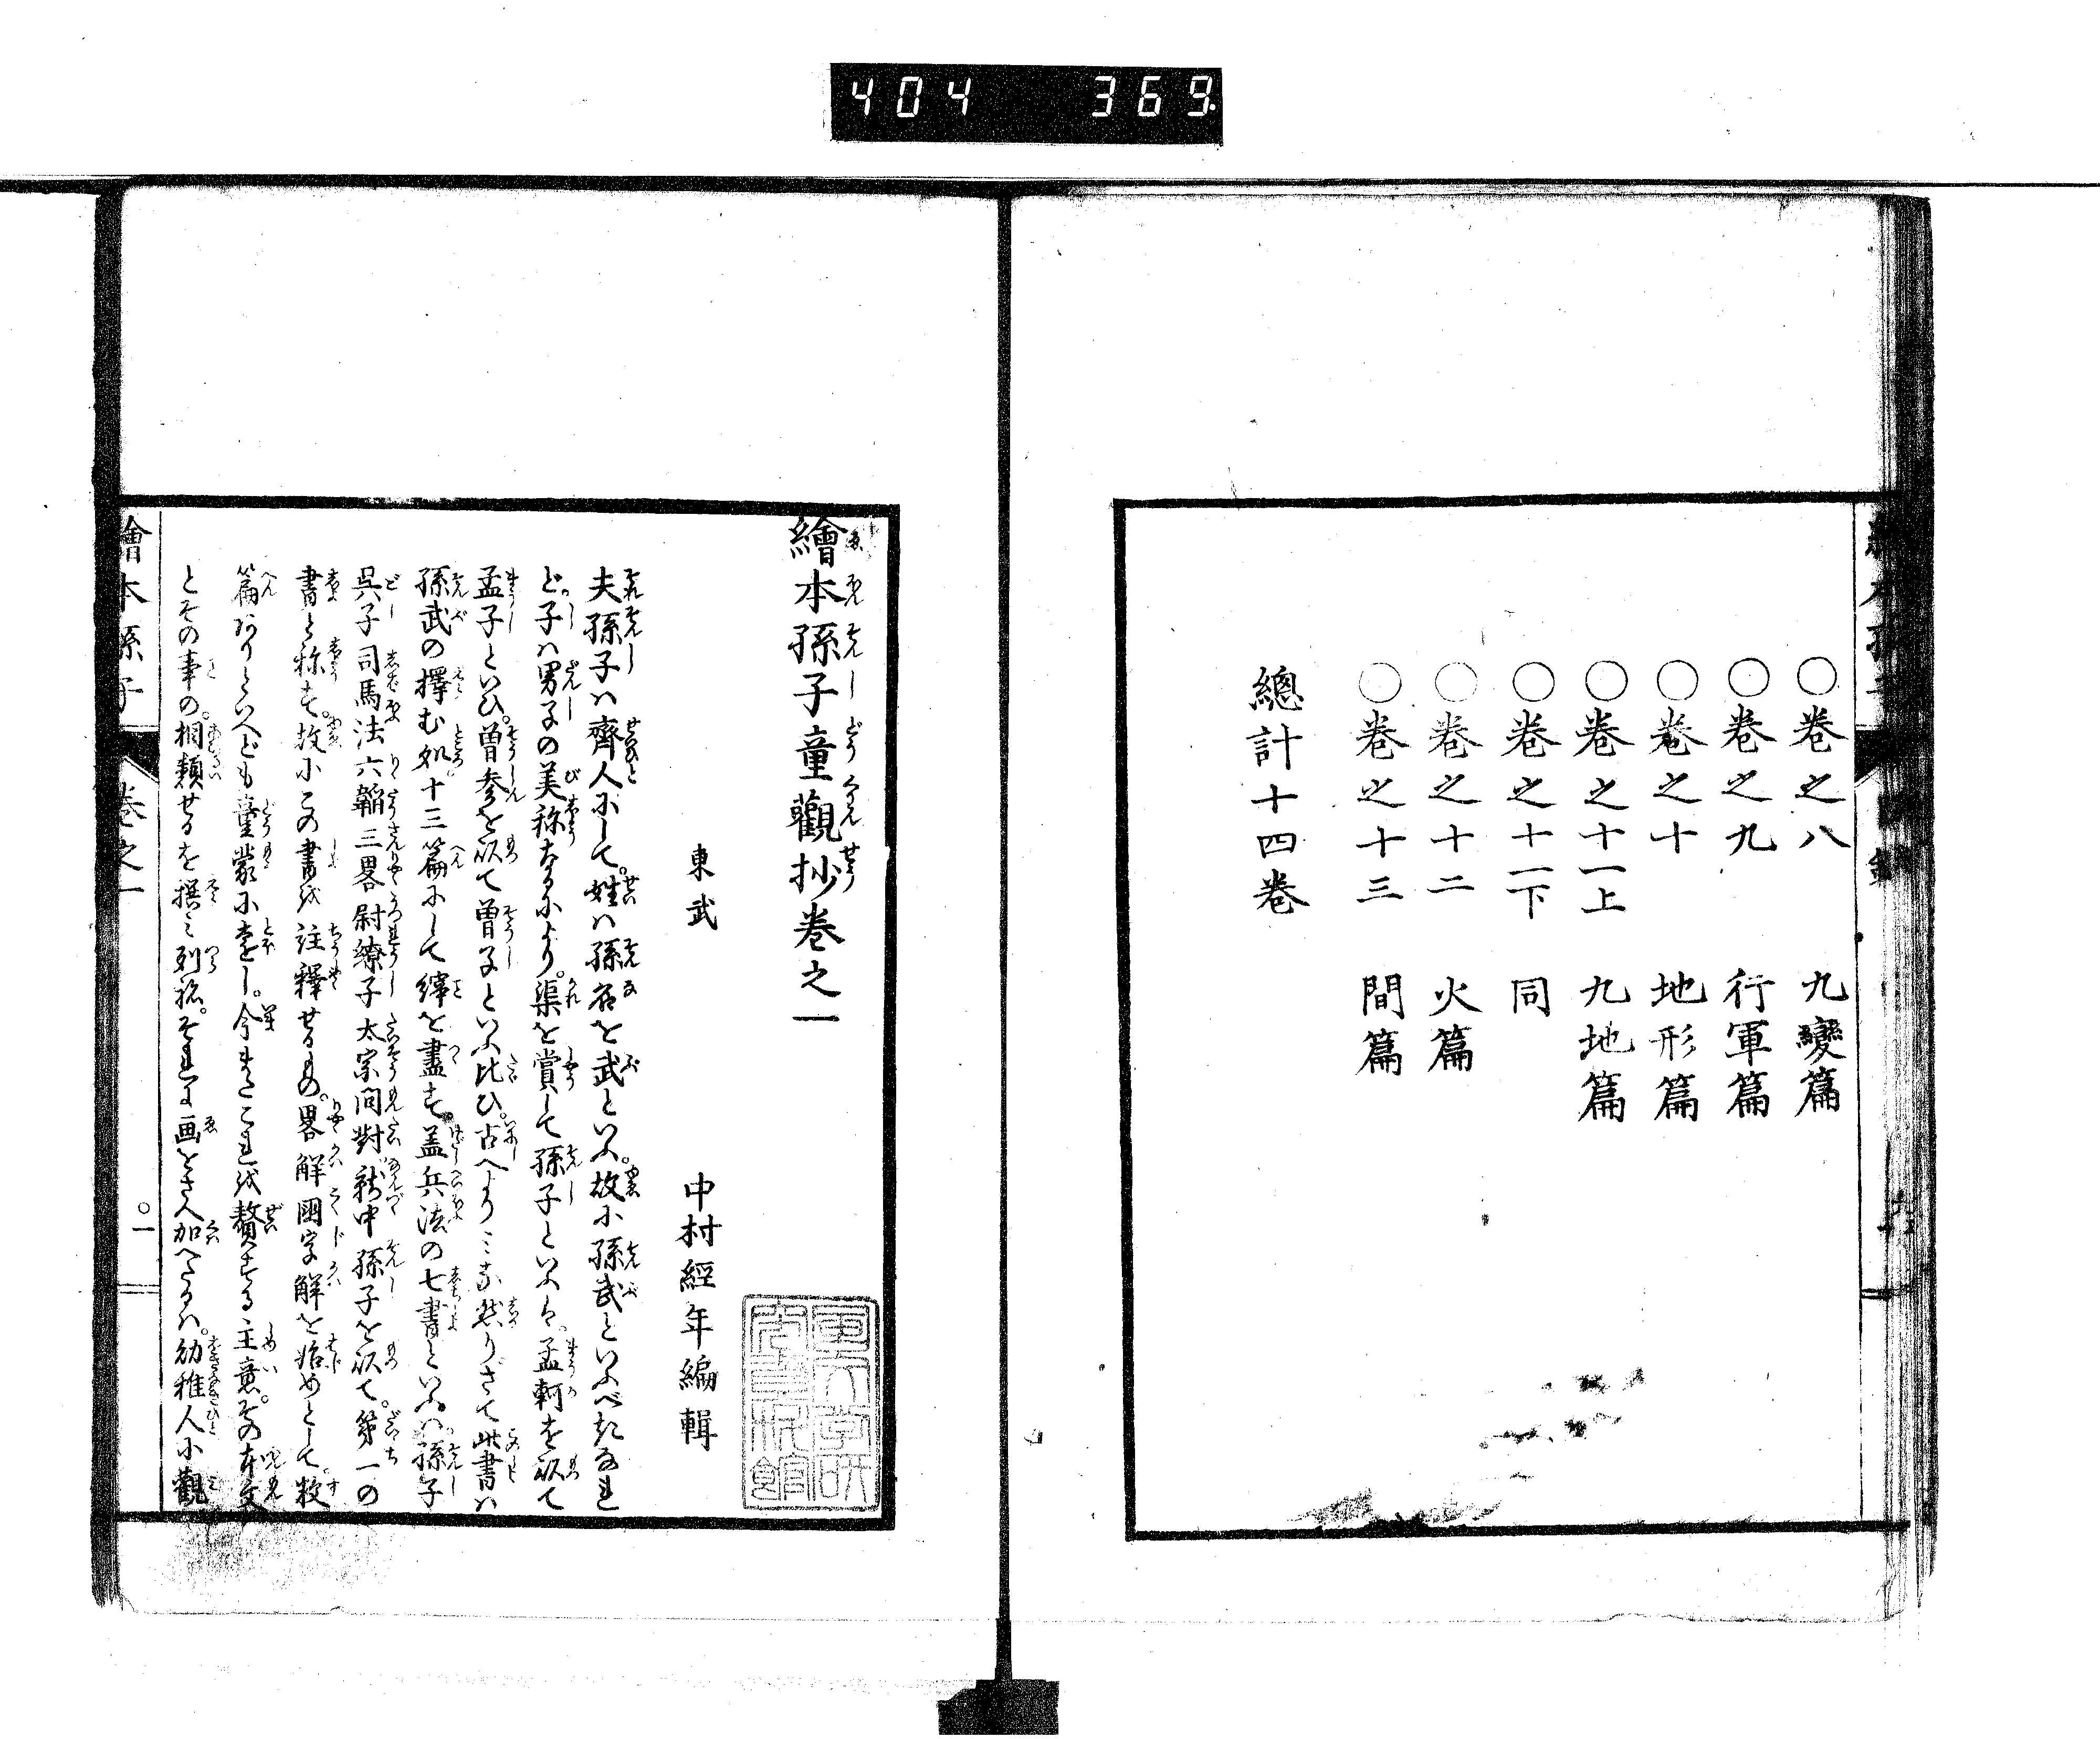 404 369
○卷之八 九變篇
○卷之九 行軍篇
○卷之十 地形篇
○卷之十一上 九地篇
○卷之十一下 同
○卷之十二 火篇
○卷之十三 間篇
總計十四卷
繪本孫子童觀抄卷之一
東武 中村經年編輯
夫孫子ハ齊人にして。姓ハ孫名を武といふ。故に孫武といふべきなれ
ど。子ハ男子の美称なるにより。渠を賞して孫子といふハ。孟軻を以て
孟子といひ。曽参を以て曽子といふ比ひ。古へよりミな然りざて此書ハ
孫武の擇む処。十三篇にして繹を盡す。盖兵法の七書といふハ。孫子
呉子司馬法六韜三畧尉繚子太宗問對就中孫子を以て。第一の
書と称す。故にこの書を註釋せるもの。畧解國字解を始めとして。数
篇ありといへども童蒙に遠し。今またこれを贅する主意。その本文
とその事の。相類せるを撰ミ列ね。それに画をさへ加へたるハ。幼稚人に觀
繪本孫子 卷之一 ○一